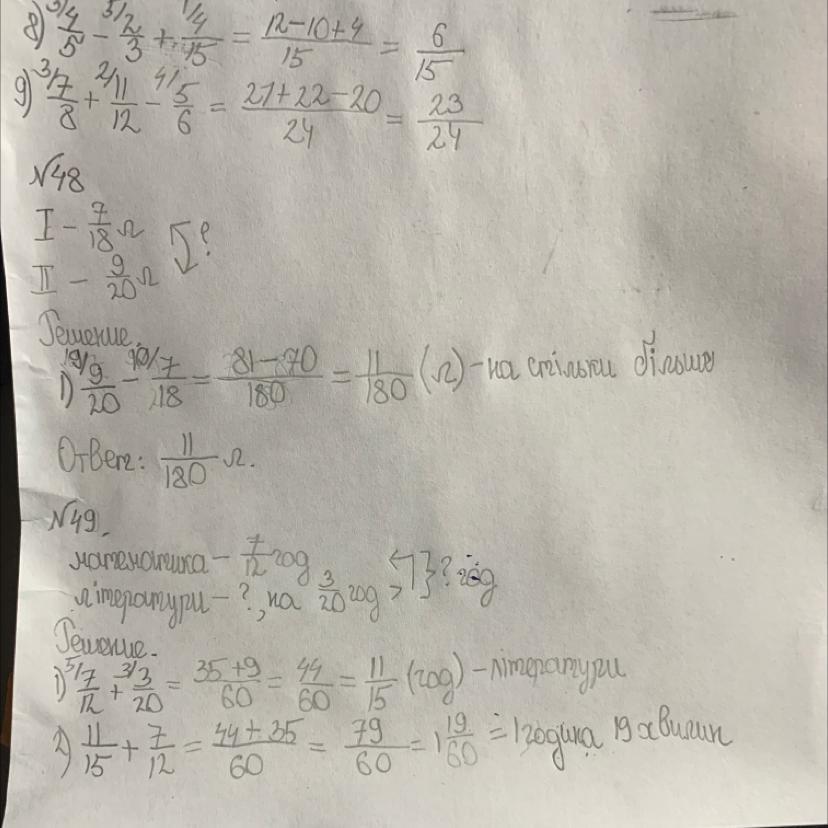 8) 3/4/5 - 5/2/3 + 1/4/15 = 12-10+4/15 = 6/15
9) 3/7/8 + 2/11/12 - 4/5/6 = 21+22-20/24 = 23/24
№48
I - 7/18 л
II - 9/20 л ?
Решение.
1) 9/9/20 - 10/7/18 = 81-70/180 = 11/180 (л) - на стільки більше
Ответ: 11/180 л.
№49.
математика - 7/12 год
літератури - ?, на 3/20 год > } ? год
Решение.
1) 5/7/12 + 3/3/20 = 35+9/60 = 44/60 = 11/15 (год) - літератури
2) 11/15 + 7/12 = 44+35/60 = 79/60 = 1 19/60 = 1 година 19 хвилин